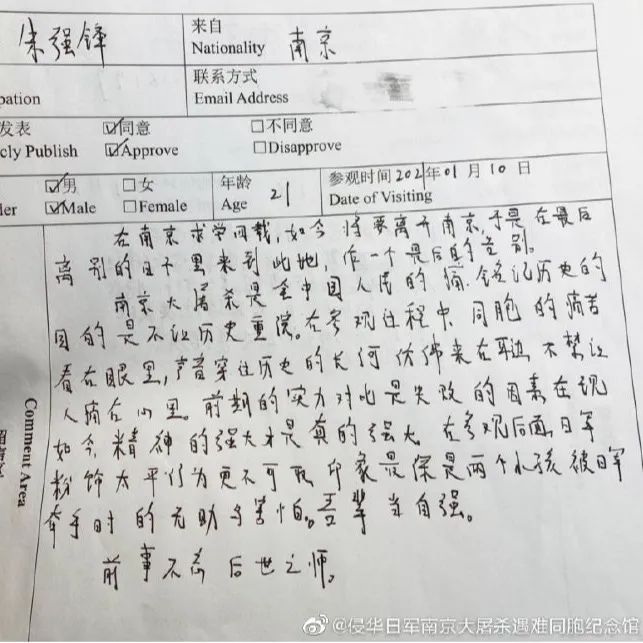 强锋
来自
Nationality 南京
联系方式
pation Email Address
发表 同意 不同意
cly Publish Approve Disapprove
男 女 年龄 21 参观时间 2021年01月10日
der Male Female Age Date of Visiting
在南京求学四载,如今将要离开南京,于是在最后
离别的日子里来到此地,作一个最后的告别。
南京大屠杀是全中国人民的痛,铭记历史的
目的是不让历史重演。在参观过程中,同胞的痛苦
看在眼里,声音穿过历史的长河仿佛来在耳边,不禁让
人痛在心里。前期的实力对比是失败的因素在现
如今,精神的强大才是真的强大。在参观后面,日军
粉饰太平行为更不可取,印象最深是两个小孩被日军
牵手时的无助与害怕。吾辈当自强。
前事不忘后世之师。
Comment Area
@侵华日军南京大屠杀遇难同胞纪念馆